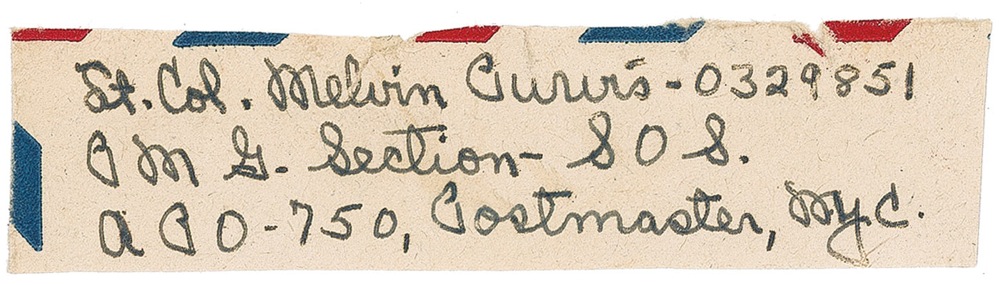 Lt. Col. Melvin Purvis-0329851
P M G. Section- S O S.
A P O-750, Postmaster, N.Y.C.